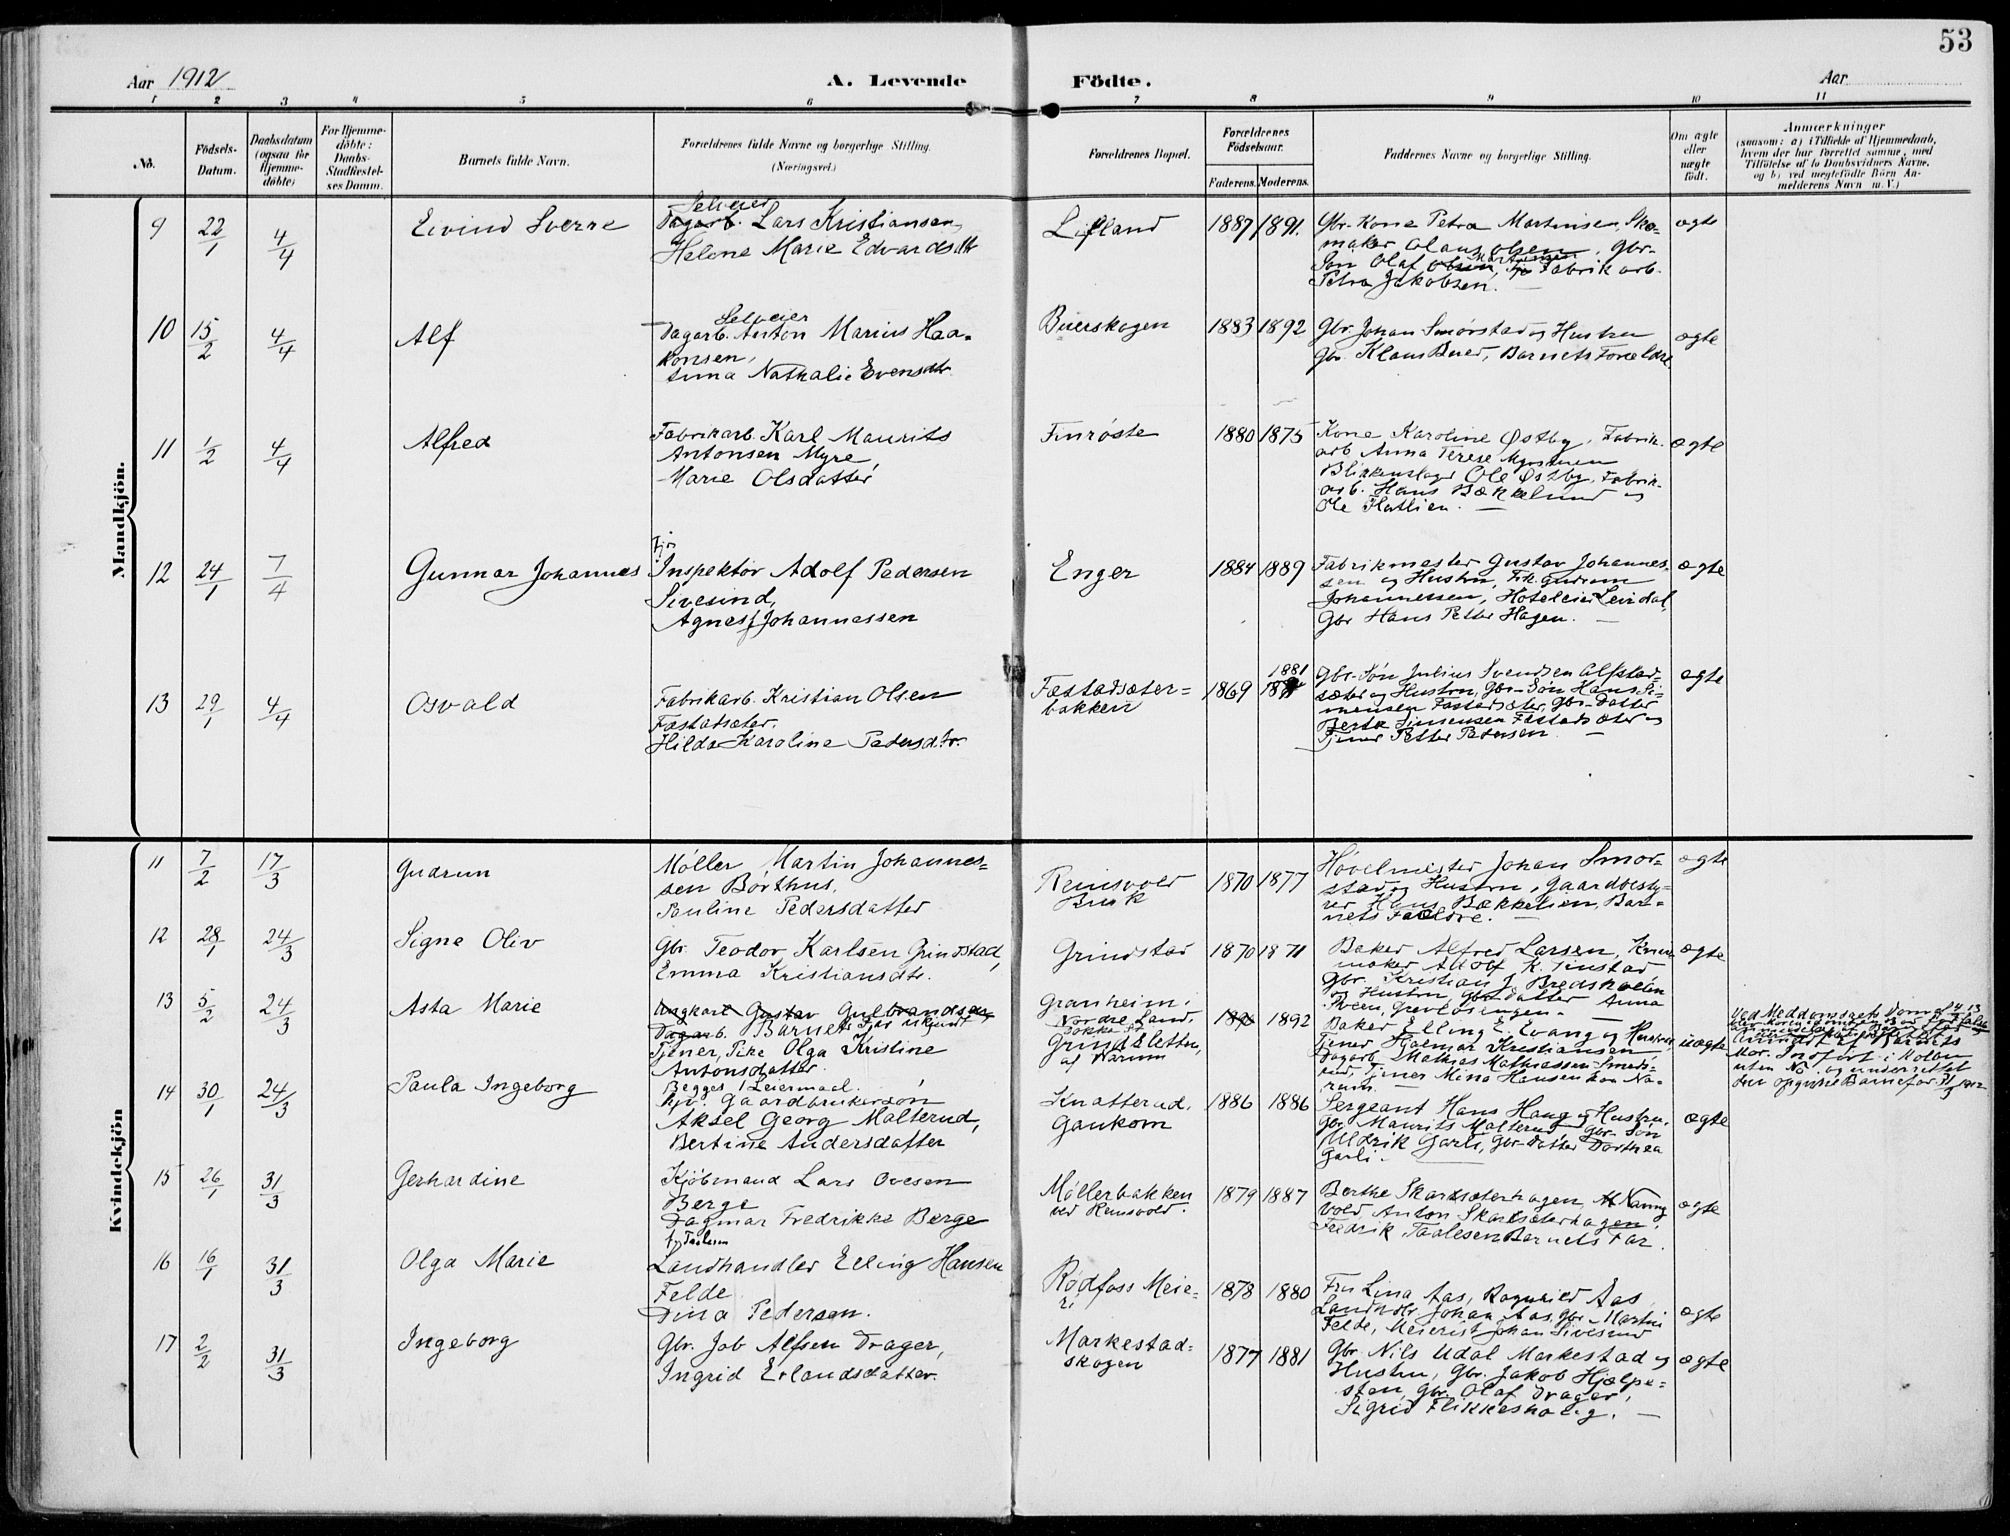 53
Aar 1912 A. Levende Födte. Aar
1 2 3 4 5 6 7 8 9 10 11
No.
Födsels-
Datum.
Daabsdatum
(ogsaa for
Hjemme-
döbte)
For Hjemme-
döbte:
Daabs-
Stadfæstel-
ses Datum.
Barnets fulde Navn.
Forældrenes fulde Navne og borgerlige Stilling.
(Næringsvei.)
Forældrenes Bopæl.
Forældrenes
Födselsaar.
Faderens. Moderens.
Faddernes Navne og borgerlige Stilling.
Om ægte
eller
uægte
födt.
Anmærkninger
(saasom: a) i Tilfælde af Hjemmedaab,
hvem der har forrettet samme, med
Tilföielse af to Daabsvidners Navne,
og b) ved uægtefödte Börn An-
melderens Navn m. V.)
Mandkjön.
9 22/1 4/4 Eivind Sverre
Selveier
Dagarb. Lars Kristiansen,
Helene Marie Edvardsdtr
1887 1891.
Gbr. Kone Petra Martinsen, Sko-
maker Olaus Olsen, Gbr-
Søn Olaf Fabrikarb.
Petra Jakobsen.
ægte
10 15/2 4/4 Alf
Selveier
Dagarb. Anton Marius Haa-
konsen,
Nathalie Evensdtr
Buerskogen 1883 1892
Gbr. Johan Smørstad og Hustru
Gbr. Klaus Buer, Barnets Forældre.
ægte
11 1/2 4/4 Alfred
Fabrikarb. Karl Maurits
Antonsen Myre,
Marie Olsdatter
1880 1875
Kone Karoline Østby, Fabrik-
arb Anna Terese
Blikkenslager Ole Østby, Fabrik-
arb. Hans Bækkelund og
Ole
ægte
12 24/1 7/4 Gunnar Johannes
Inspektør Adolf Pedersen
Sivesind,
Agnes Johannessen
Enger 1884 1889
Fabrikmester Gustav Johannes-
sen og Hustru, Frk. Gudrun
Johannessen, Hoteleier
Gbr Hans Petter Hagen.
ægte
13 29/1 4/4 Osvald
Fabrikarb. Kristian Olsen
Fæstadsæter.
Hilda Karoline Pedersdtr.
Fæstadsæter-
bakken
1869 1881
Gbr-Søn Julius Svendsen Alfstad-
sæter og Hustru, Gbr-Søn Hans Si-
monsen Fæstadsæter, Gbr-Datter
Berte Simensen Fæstadsæter og
Tjener Petter Pedersen
ægte
Kvindekjön
11 7/2 17/3 Gudrun
Møller, Martin Johannes-
sen Børthus,
Pauline Pedersdatter
Reinsvold
Bruk
1870 1877
Høvelmester Johan Smør-
stad og Hustru, Gaardbesty-
rer Hans Bækkelien, Bar-
nets Forældre.
ægte
12 28/1 24/3 Signe Oliv
Gbr. Teodor Karlsen Grindstad,
Emma Kristiansdtr.
Grindstad 1870 1871
Baker Alfred Larsen,
maker Adolf K. Finstad
Gbr. Kristian J. Bredskoelen
og Hustru, Gbr-Datter Anna
ægte
13 5/2 24/3 Asta Marie
Ungkarl Gustav Gulbrandsen
Dagarb. Barnets Far ukjendt
Tjener, Pike Olga Kristine
Antonsdatter
Begges 1 Leiermaal.
Granheim,
Nordre Land.
Grindsletten,
1892
Baker Elling E. Evang og Hustru,
Tjener Hjalmar Kristiansen,
Dagarb. Mathias Mathiassen
Tjener Mina Hansen
uægte
Ved Meddomsrets Dom af
Mor. Indført i Kolbu
uten No. og underrettet
14 30/1 24/3 Paula Ingeborg
Gaardbrukersøn
Aksel Georg Malterud,
Bertine Andersdatter
Knatterud,
Gaukom
1886 1886
Sergeant Hans Haug og Hustru,
Gbr. Maurits Malterud Gbr-Søn
Uldrik Garli, Gbr-Datter Dorthea
Garli.
ægte
15 26/1 31/3 Gerhardine
Kjöbmand Lars Ovesen
Berge
Dagmar Fredrikke Berge
Møllerbakken
ved Reinsvold.
1879 1887
Berthe Skartsæterhagen,
vold Anton Skartsæterhagen,
Fredrik Taalesen Barnets Far.
ægte
16 16/1 31/3 Olga Marie
Landhandler Elling Hansen
Felde
Dina Pedersen.
Rødfoss Meie-
ri
1878 1880
Fru Lina Aas, Ragnhild Aas
Landhdlr Johan Aas, Gbr Martin
Felde, Meierist Johan Sivesind
ægte
17 2/2 31/3 Ingeborg
Gbr. Job Alfsen Drager,
Ingrid Erlandsdatter.
Markestad-
skogen
1877 1881
Gbr. Nils Udal Markestad og
Hustru, Gbr. Jakob Hjælpe-
sten, Gbr. Olaf Drager,
Sigrid Flikkeshaug.
ægte